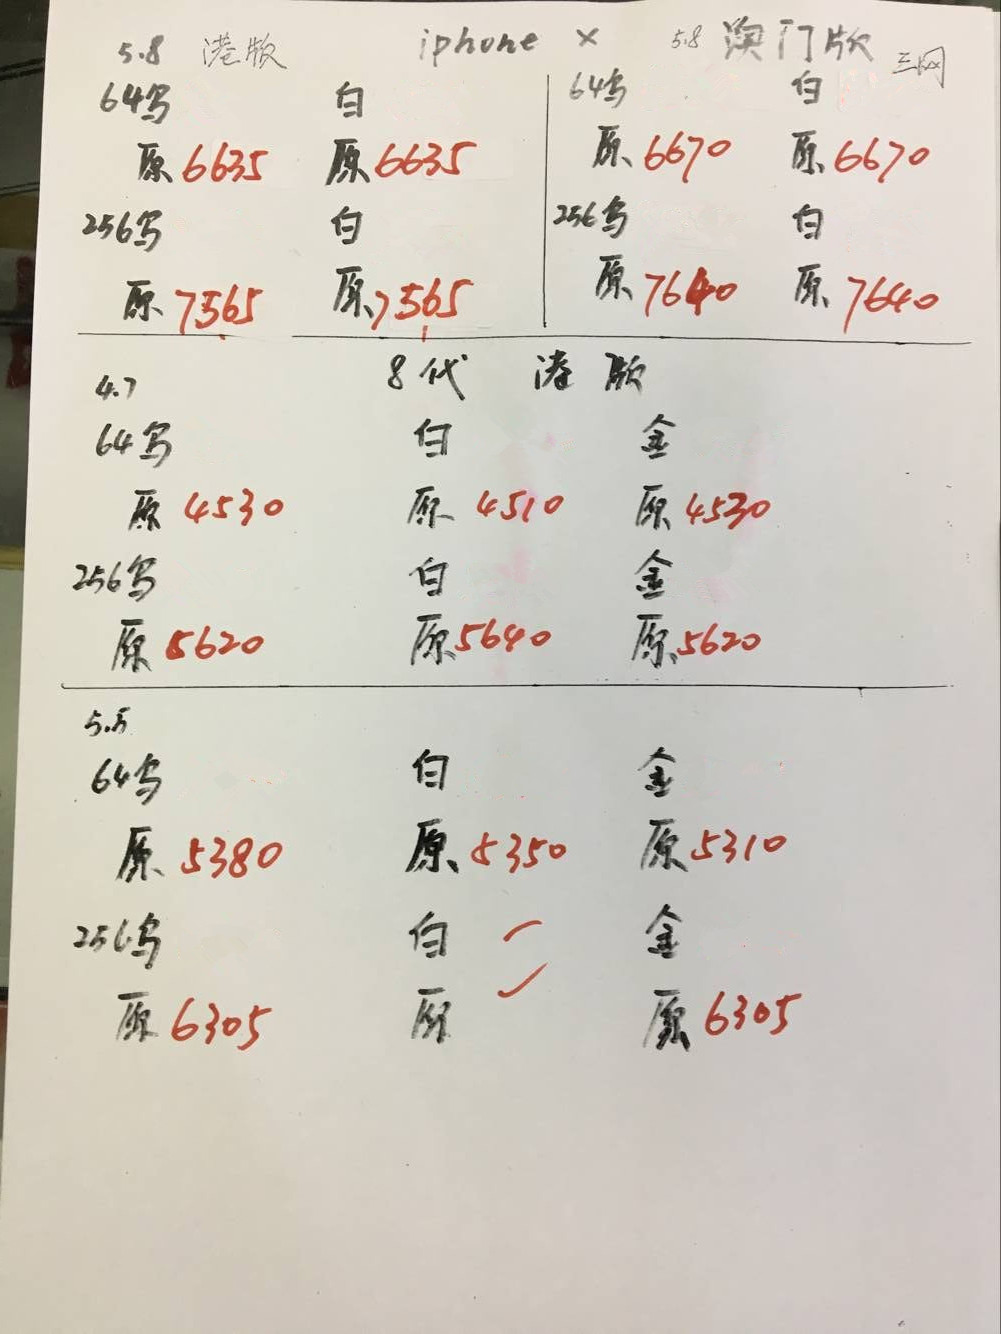 5.8 港版 iphone x 5.8 澳门版 三网
64乌 白 64乌 白
原 6635 原 6635 原 6670 原 6670
256乌 白 256乌 白
原 7565 原 7565 原 7640 原 7640
4.7 8代 港版
64乌 白 金
原 4530 原 4510 原 4530
256乌 白 金
原 5620 原 5640 原 5620
5.5
64乌 白 金
原 5380 原 5350 原 5310
256乌 白 金
原 6305 原 原 6305